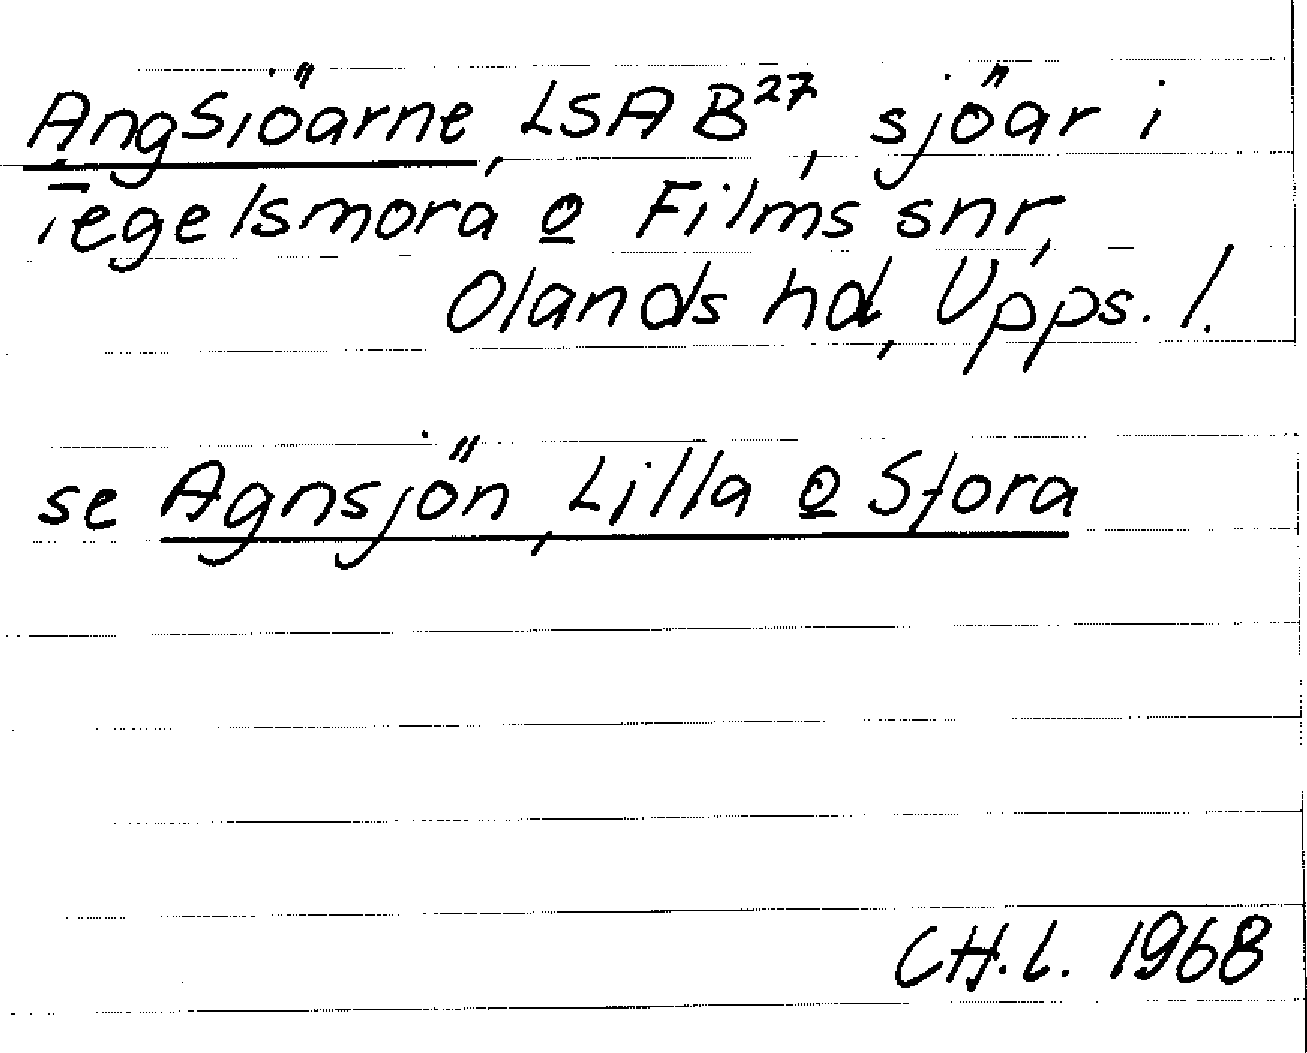 AngSiöarne, LSA B²⁷, sjöar i
Tegelsmora o Films snr,
Olands hd, Upps. l.
se Agnsjön, Lilla o Stora
CH.L. 1968